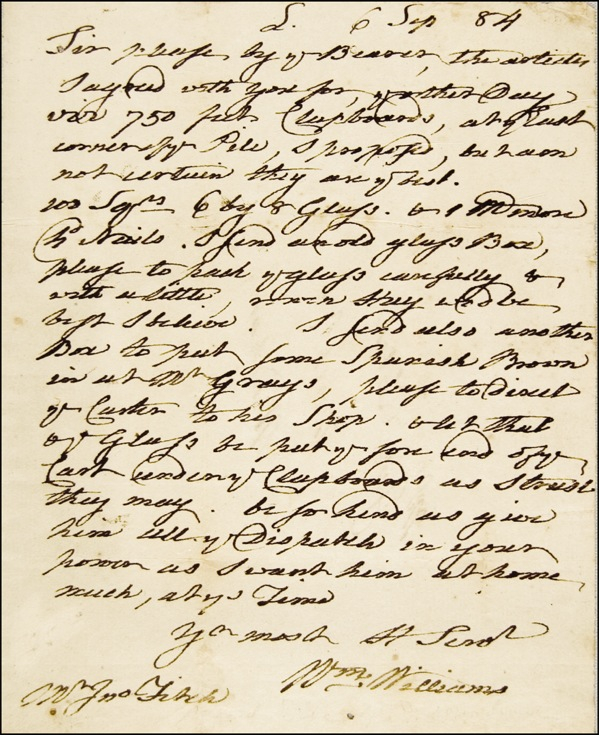 L. 6 Sep 84
Sir please by yᵉ Bearer, the articles
I agreed with you for, yᵉ other Day
viz 750 feet Clapboards, at yᵉ East
corner of yᵉ Pile, I proposed, but am
not certain they are yᵉ best.
100 Sqʳˢ 6 by 8 Glass. & 1 M more
hᵈ Nails. I send an old glass Box,
please to pack yᵉ glass carefully &
with a little, they endwise
best I believe. I send also another
Box to put some Spanish Brown
in at Mʳ Grays, please to direct
yᵉ Carter to his Shop. & let that
& yᵉ Glass be put yᵉ fore end of yᵉ
Cart under yᵉ Clapboards as
they may. be so kind as give
him all yᵉ Dispatch in your
power as I want him at home
much, at yˢ Time
Yʳ most H Servᵗ
Wᵐ Williams
Mʳ Jnᵒ Fitch